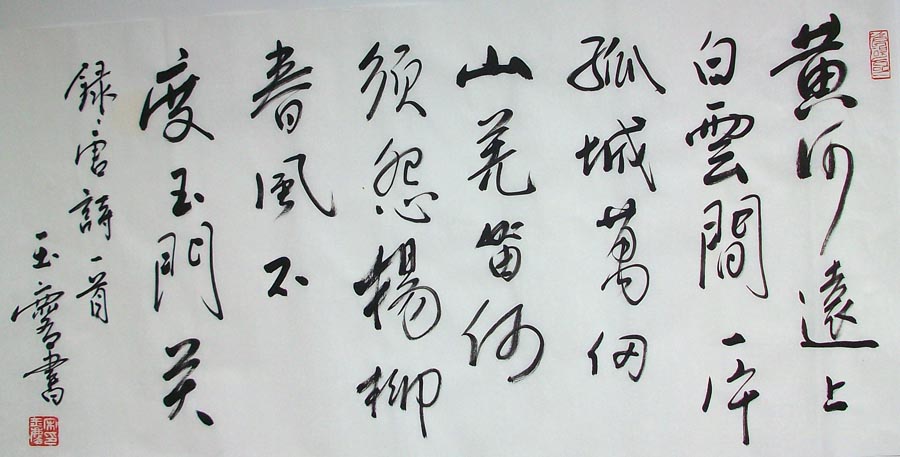 黄河遠上
白雲間一片
孤城萬仞
山羌笛何
须怨楊柳
春風不
度玉門关
録唐詩一首
玉書